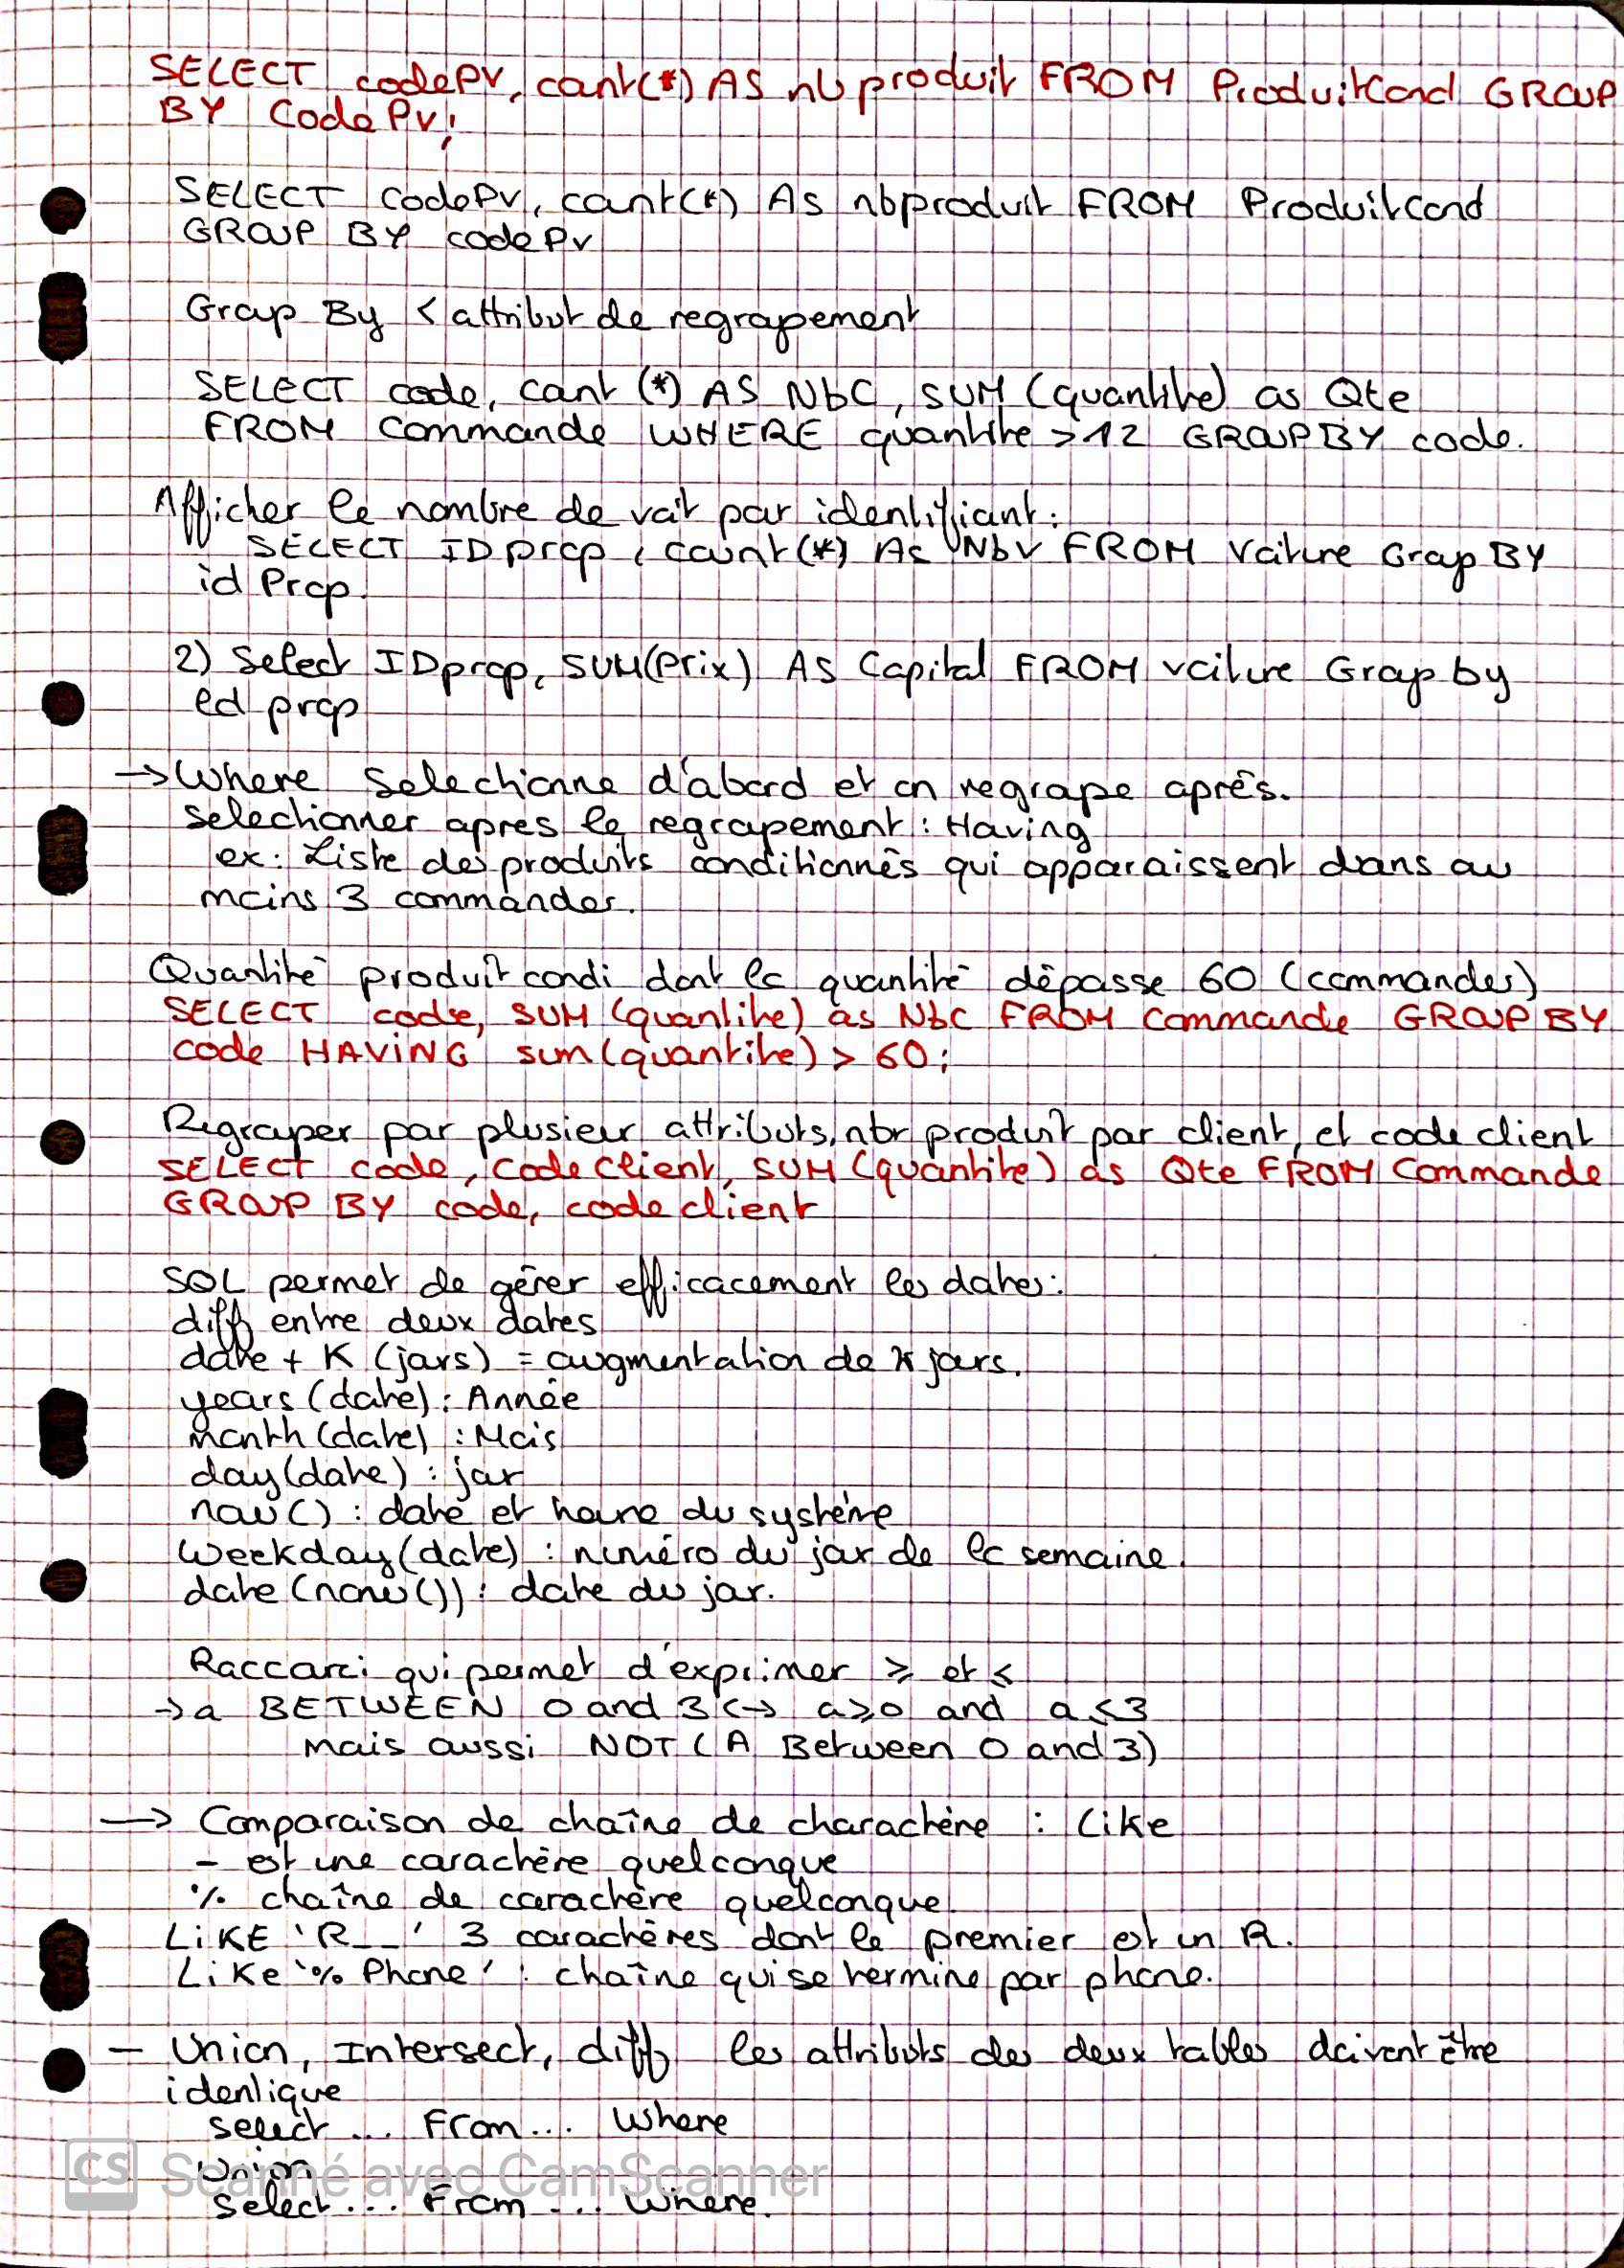 SELECT codePV, count(*) AS nb produit FROM ProduitCond GROUP
BY CodePv;
SELECT CodePV, count(*) AS nbproduit FROM ProduitCond
GROUP BY codePv
Group By < attribut de regroupement
SELECT code, count (*) AS NbC, SUM (quantite) as Qte
FROM Commande WHERE quantite > 12 GROUP BY code.
Afficher le nombre de voit par identifiant :
SELECT IDprop, count(*) As NbV FROM Voiture Group BY
id Prop.
2) Select IDprop, SUM(Prix) AS Capital FROM voiture Group by
id prop
→ Where selectionne d'abord et on regroupe après.
selectionner apres le regroupement : Having
ex: Liste des produits conditionnés qui apparaissent dans au
moins 3 commandes.
Quantité produit condi dont la quantité dépasse 60 (commandes)
SELECT code, SUM (quantite) as NbC FROM Commande GROUP BY
code HAVING sum(quantite) > 60;
Regrouper par plusieur attributs, nbr produit par client, et code client
SELECT code, Code client, SUM (quantite) as Qte FROM Commande
GROUP BY code, code client
SQL permet de gérer efficacement les dates:
diff entre deux dates
date + K (jours) = augmentation de K jours.
years (date) : Année
month (date) : Mois
day (date) : jour
now () : date et heure du système
Weekday (date) : numéro du jour de la semaine.
date (now ()) : date du jour.
Raccourci qui permet d'exprimer ⩾ et ⩽
→ a BETWEEN 0 and 3 ↔ a⩾0 and a⩽3
mais aussi NOT (A Between 0 and 3)
→ Comparaison de chaîne de charactère : Like
- est une caractère quelconque
% chaîne de caractère quelconque
LiKE 'R__' 3 caractères dont le premier est un R.
Like '% Phone' : chaîne qui se termine par phone.
- Union, Intersect, diff les attributs des deux tables doivent être
identique
select ... From ... Where
Union
select ... From ... Where.
CS Scanné avec CamScanner